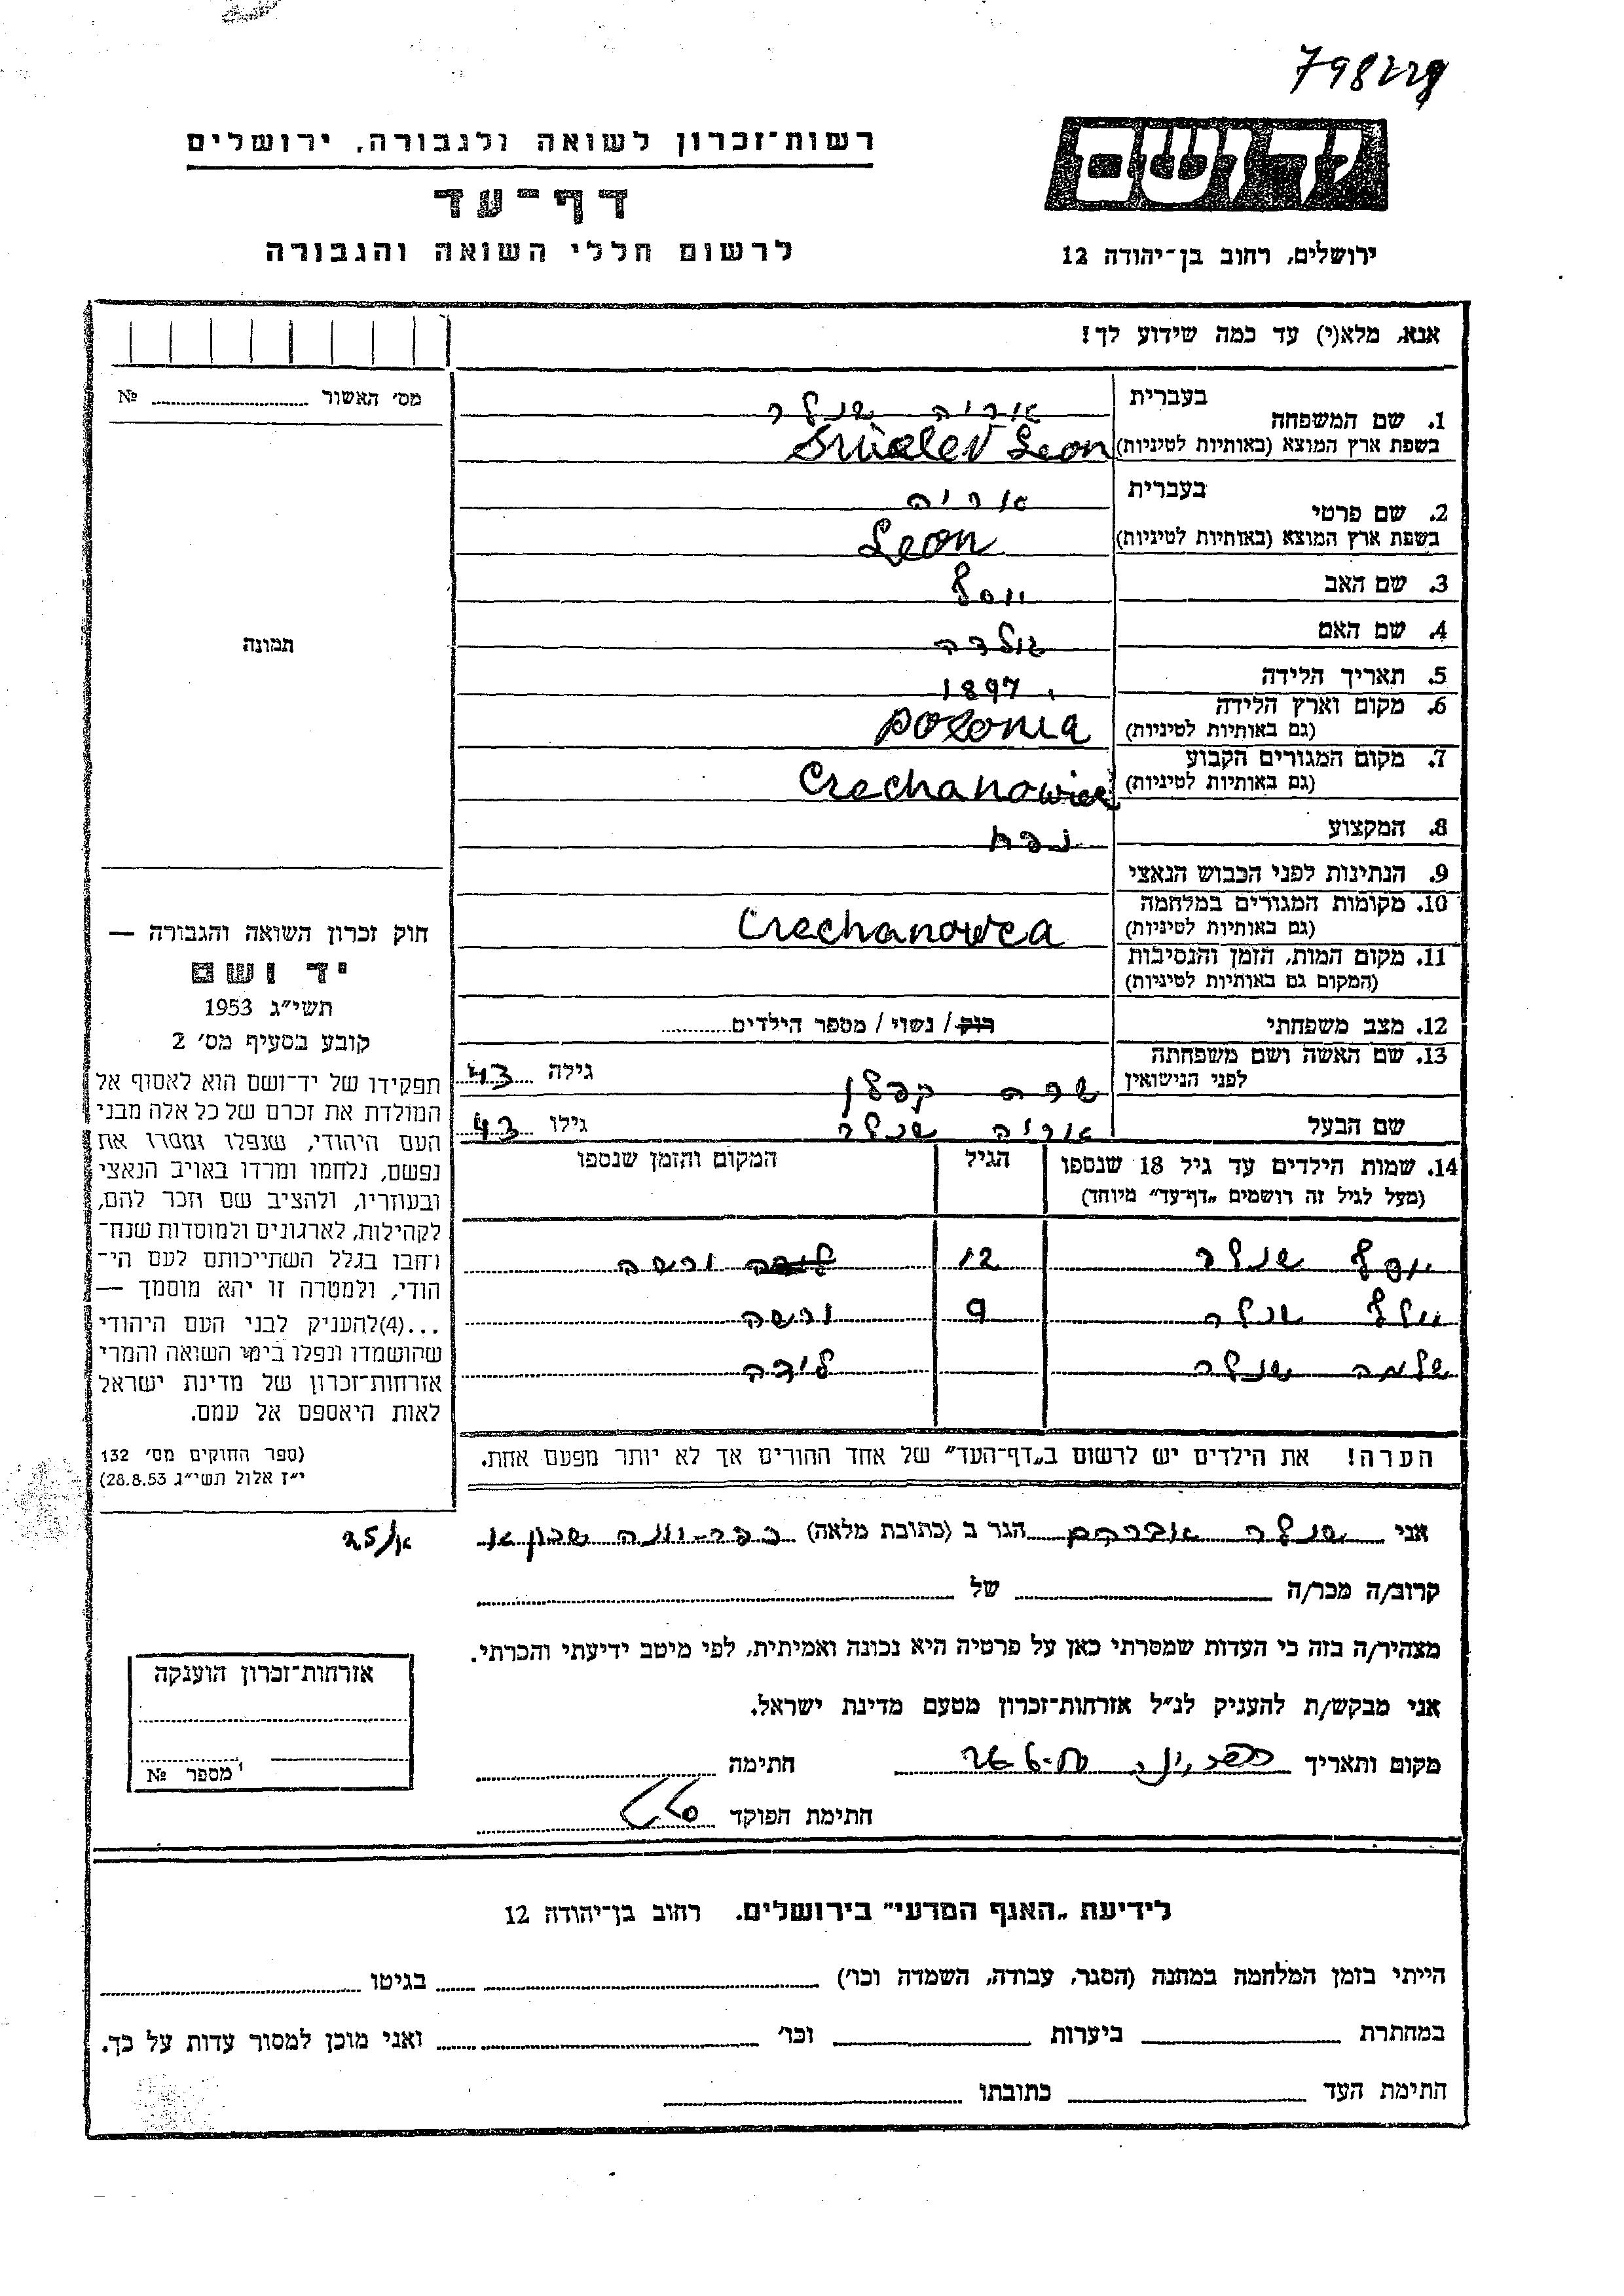 798229
רשות־זכרון לשואה ולגבורה, ירושלים
דף־עד
לרשום חללי השואה והגבורה
יד ושם
ירושלים, רחוב בן־יהודה 12
אנא, מלא(י) עד כמה שידוע לך!
מס׳ האשור № 
1. שם המשפחה בעברית אריה שנלר
בשפת ארץ המוצא (באותיות לטיניות) Leon
2. שם פרטי בעברית אריה
בשפת ארץ המוצא (באותיות לטיניות) Leon
3. שם האב יוסף
4. שם האם גולדה
5. תאריך הלידה 1897
6. מקום וארץ הלידה
(גם באותיות לטיניות) Polonia
7. מקום המגורים הקבוע
(גם באותיות לטיניות) Crechanowice
8. המקצוע נפח
9. הנתינות לפני הכבוש הנאצי
10. מקומות המגורים במלחמה
(גם באותיות לטיניות) Crechanowca
11. מקום המות, הזמן והנסיבות
(המקום גם באותיות לטיניות)
12. מצב משפחתי רוק / נשוי / מספר הילדים
13. שם האשה ושם משפחתה
לפני הנישואין שרה קפלן גילה 43
שם הבעל אריה שנלר גילו 43
14. שמות הילדים עד גיל 18 שנספו הגיל המקום והזמן שנספו
(מעל לגיל זה רושמים „דף־עד״ מיוחד)
יוסף שנלר 12 ורשה
וולף שנלר 9 ורשה
שלמה שנלר לידה
הערה! את הילדים יש לרשום ב„דף־העד״ של אחד ההורים אך לא יותר מפעם אחת.
תמונה
חוק זכרון השואה והגבורה —
יד ושם
תשי״ג 1953
קובע בסעיף מס׳ 2
תפקידו של יד־ושם הוא לאסוף אל
המולדת את זכרם של כל אלה מבני
העם היהודי, שנפלו ומסרו את
נפשם, נלחמו ומרדו באויב הנאצי
ובעוזריו, ולהציב שם וזכר להם,
לקהילות, לארגונים ולמוסדות שנח־
רחבו בגלל השתייכותם לעם הי־
הודי, ולמטרה זו יהא מוסמך —
...(4)להעניק לבני העם היהודי
שהושמדו ונפלו בימי השואה והמרי
אזרחות־זכרון של מדינת ישראל
לאות היאספם אל עמם.
(ספר החוקים מס׳ 132
י״ז אלול תשי״ג 28.8.53)
אני שנלר אברהם הגר ב (כתובת מלאה) כפר־יונה שכון א׳ 25/א
קרוב/ה מכר/ה של
מצהיר/ה בזה כי העדות שמסרתי כאן על פרטיה היא נכונה ואמיתית, לפי מיטב ידיעתי והכרתי.
אני מבקש/ת להעניק לנ״ל אזרחות־זכרון מטעם מדינת ישראל.
מקום ותאריך חתימה
חתימת הפוקד
אזרחות־זכרון הוענקה
מספר №
לידיעת „האגף המדעי״ בירושלים. רחוב בן־יהודה 12
הייתי בזמן המלחמה במחנה (הסגר, עבודה, השמדה וכו׳) בגיטו
במחתרת ביערות וכו׳ ואני מוכן למסור עדות על כך.
חתימת העד כתובתו